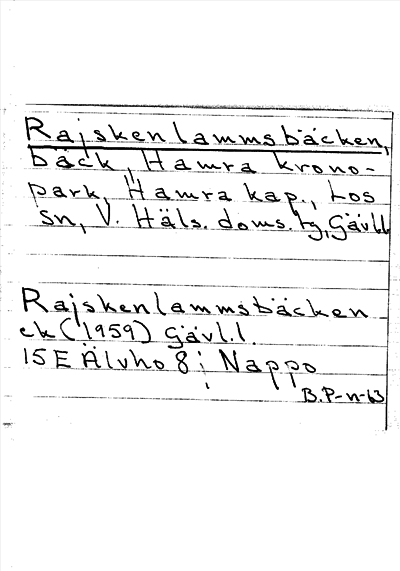 Rajskenlammsbäcken,
bäck, Hamra krono-
park, Hamra kap., Los
sn, V. Häls. doms. tg, Gävl.l.
Rajskenlammsbäcken
ek (1959) Gävl.l.
15E Älvho 8i Nappo
B.P-n-63